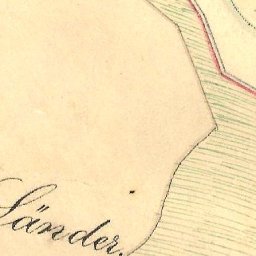 Länder.